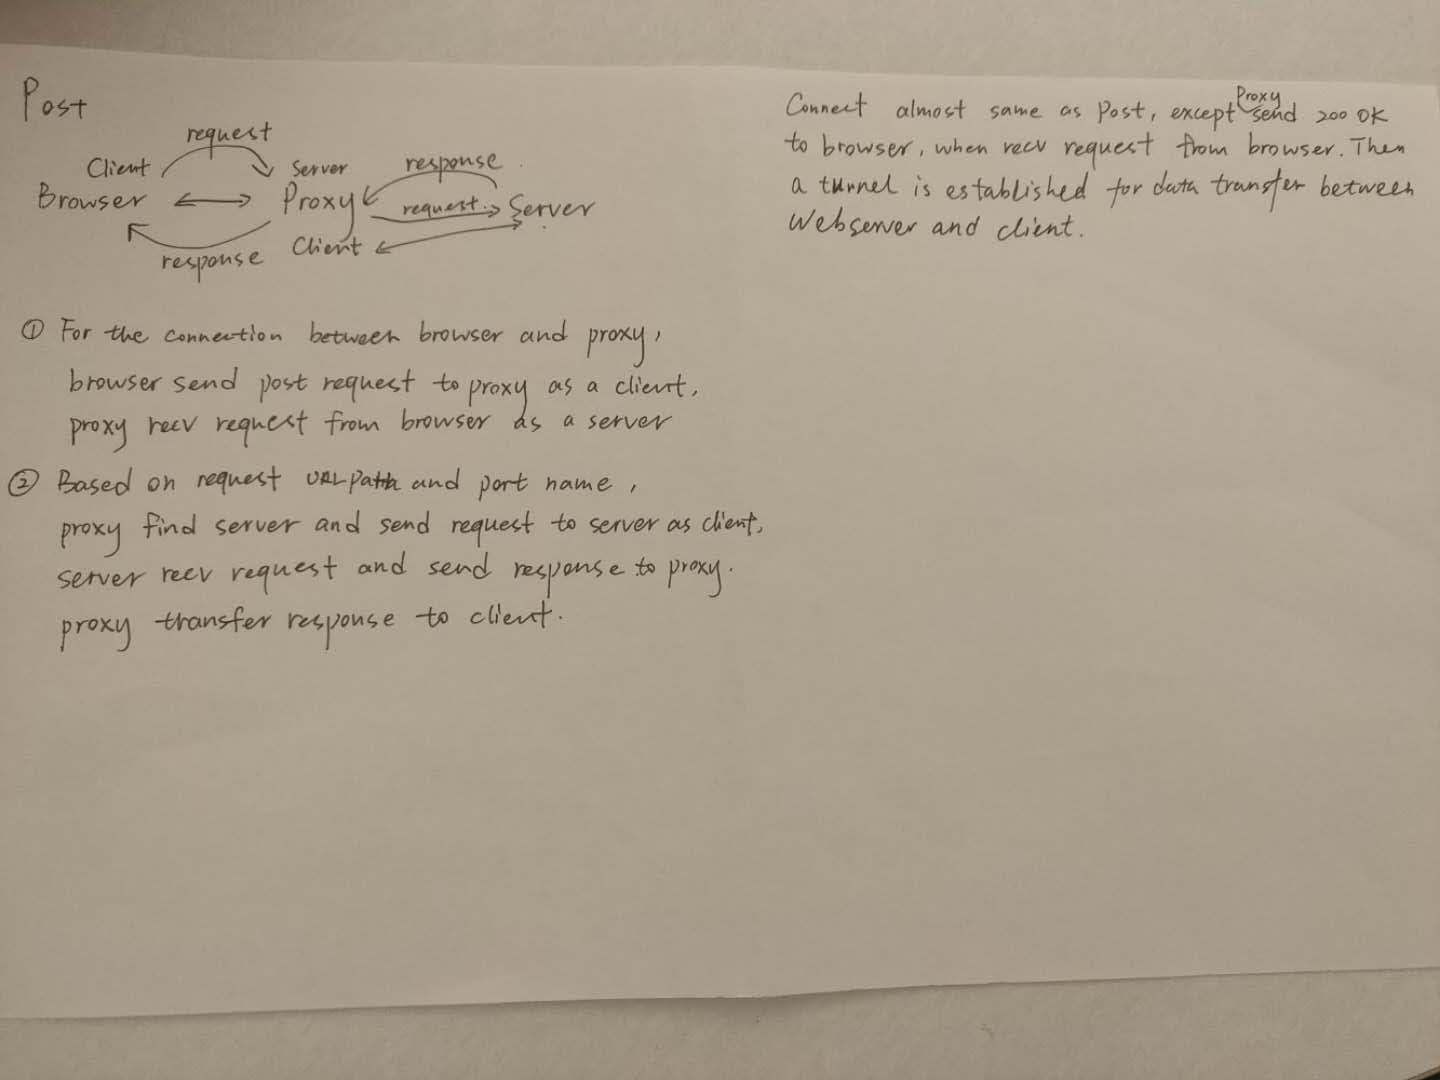 Post
request
Client
Server
response
Browser
Proxy
request
Server
Client
response
① For the connection between browser and proxy,
browser send post request to proxy as a client,
proxy recv request from browser as a server
② Based on request URL path and port name,
proxy find server and send request to server as client,
server recv request and send response to proxy.
proxy transfer response to client.
Connect almost same as Post, except Proxy send 200 OK
to browser, when recv request from browser. Then
a tunnel is established for data transfer between
Webserver and client.